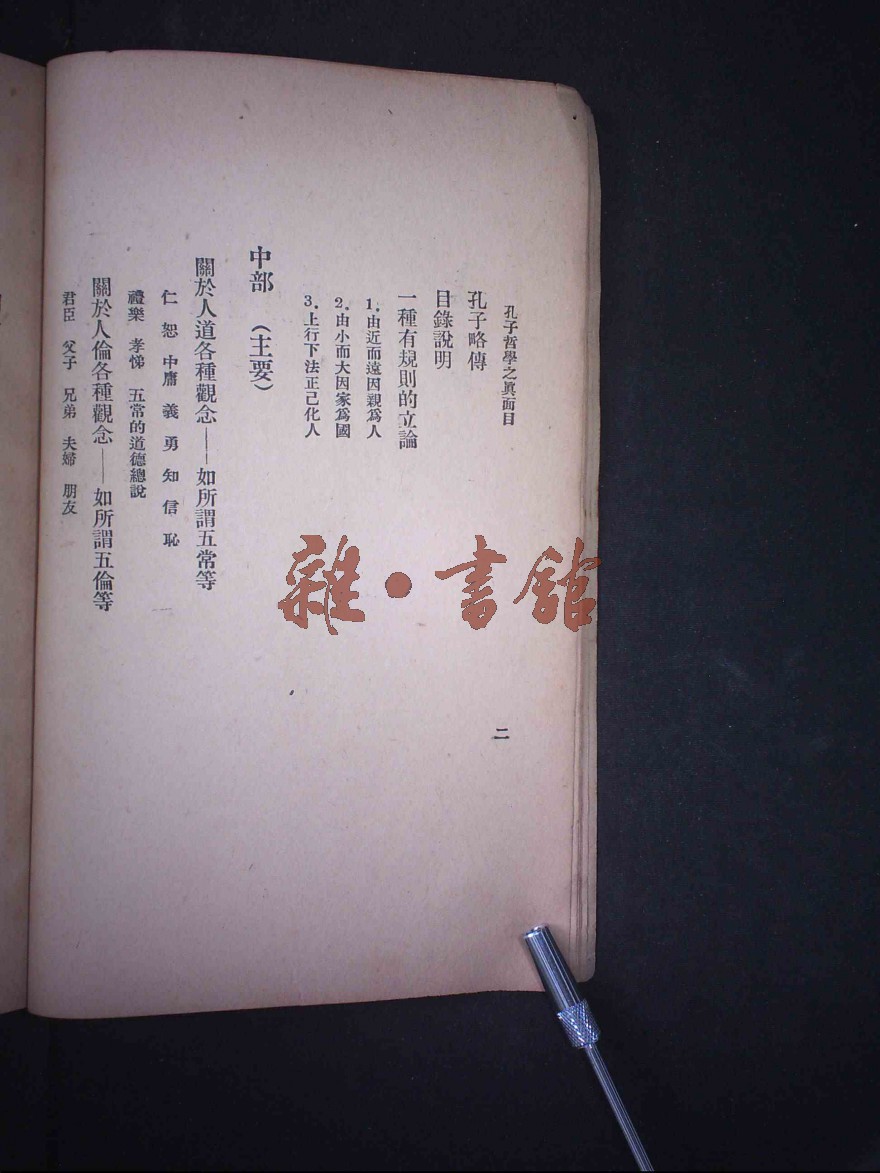 孔子哲學之眞面目
二
孔子略傳
目錄說明
一種有規則的立論
1.由近而遠因親爲人
2.由小而大因家爲國
3.上行下法正己化人
中部　（主要）
關於人道各種觀念——如所謂五常等
仁　恕　中庸　義　勇　知　信　恥
禮樂　孝悌　五常的道德總說
關於人倫各種觀念——如所謂五倫等
君臣　父子　兄弟　夫婦　朋友
雜•書館